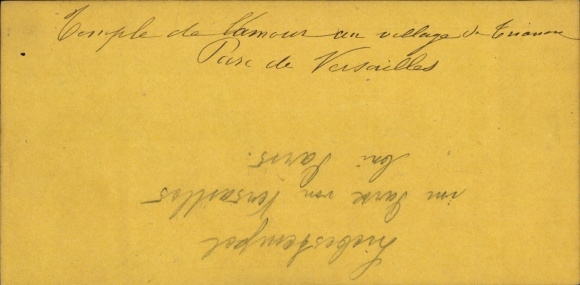 Temple de l'amour au village de Trianon
Parc de Versailles
Liebestempel
im Park von Versailles
bei Paris.